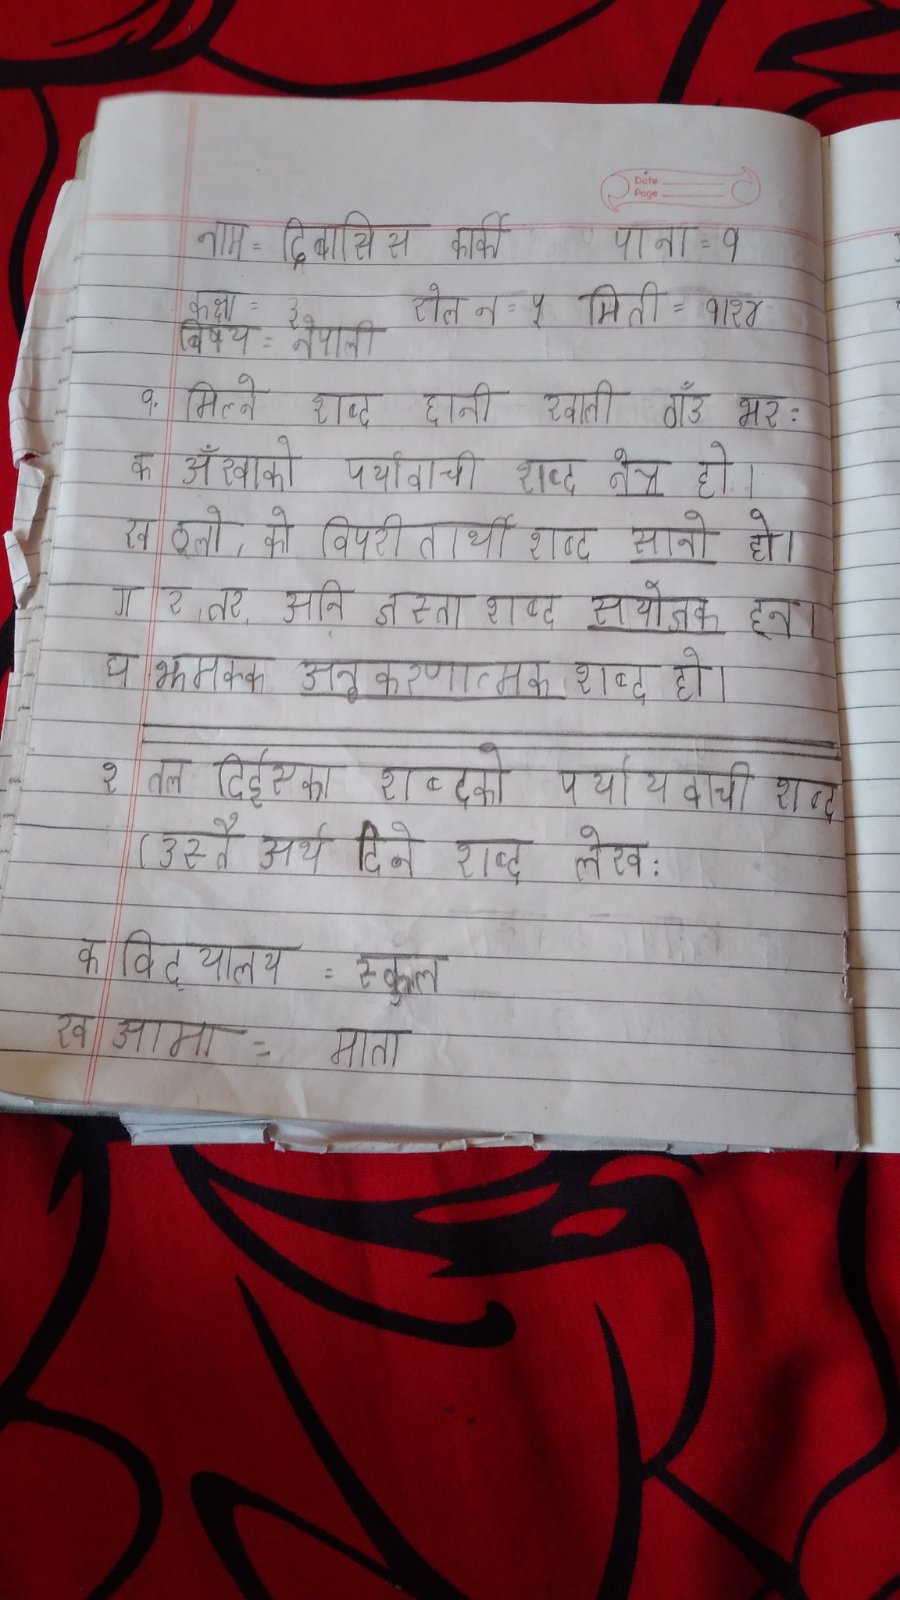 Date
Page
नाम = दिबासिस कार्की पाना = १
कक्षा = ३ रोल न = ५ मिती = १।२४
बिषय = नेपाली
१. मिल्ने शब्द छानी खाली ठाँउ भर:
क आँखाको पर्यावाची शब्द नेत्र हो।
ख ठूलो, को विपरीतार्थी शब्द सानो हो।
ग र, तर, अनि जस्ता शब्द सयोजक हुन।
घ झमक्क अनुकरणात्मक शब्द हो।
२ तल दिईएका शब्दको पर्यायवाची शब्द
(उस्तै अर्थ दिने शब्द लेख:
क विद्यालय = स्कुल
ख आमा = माता